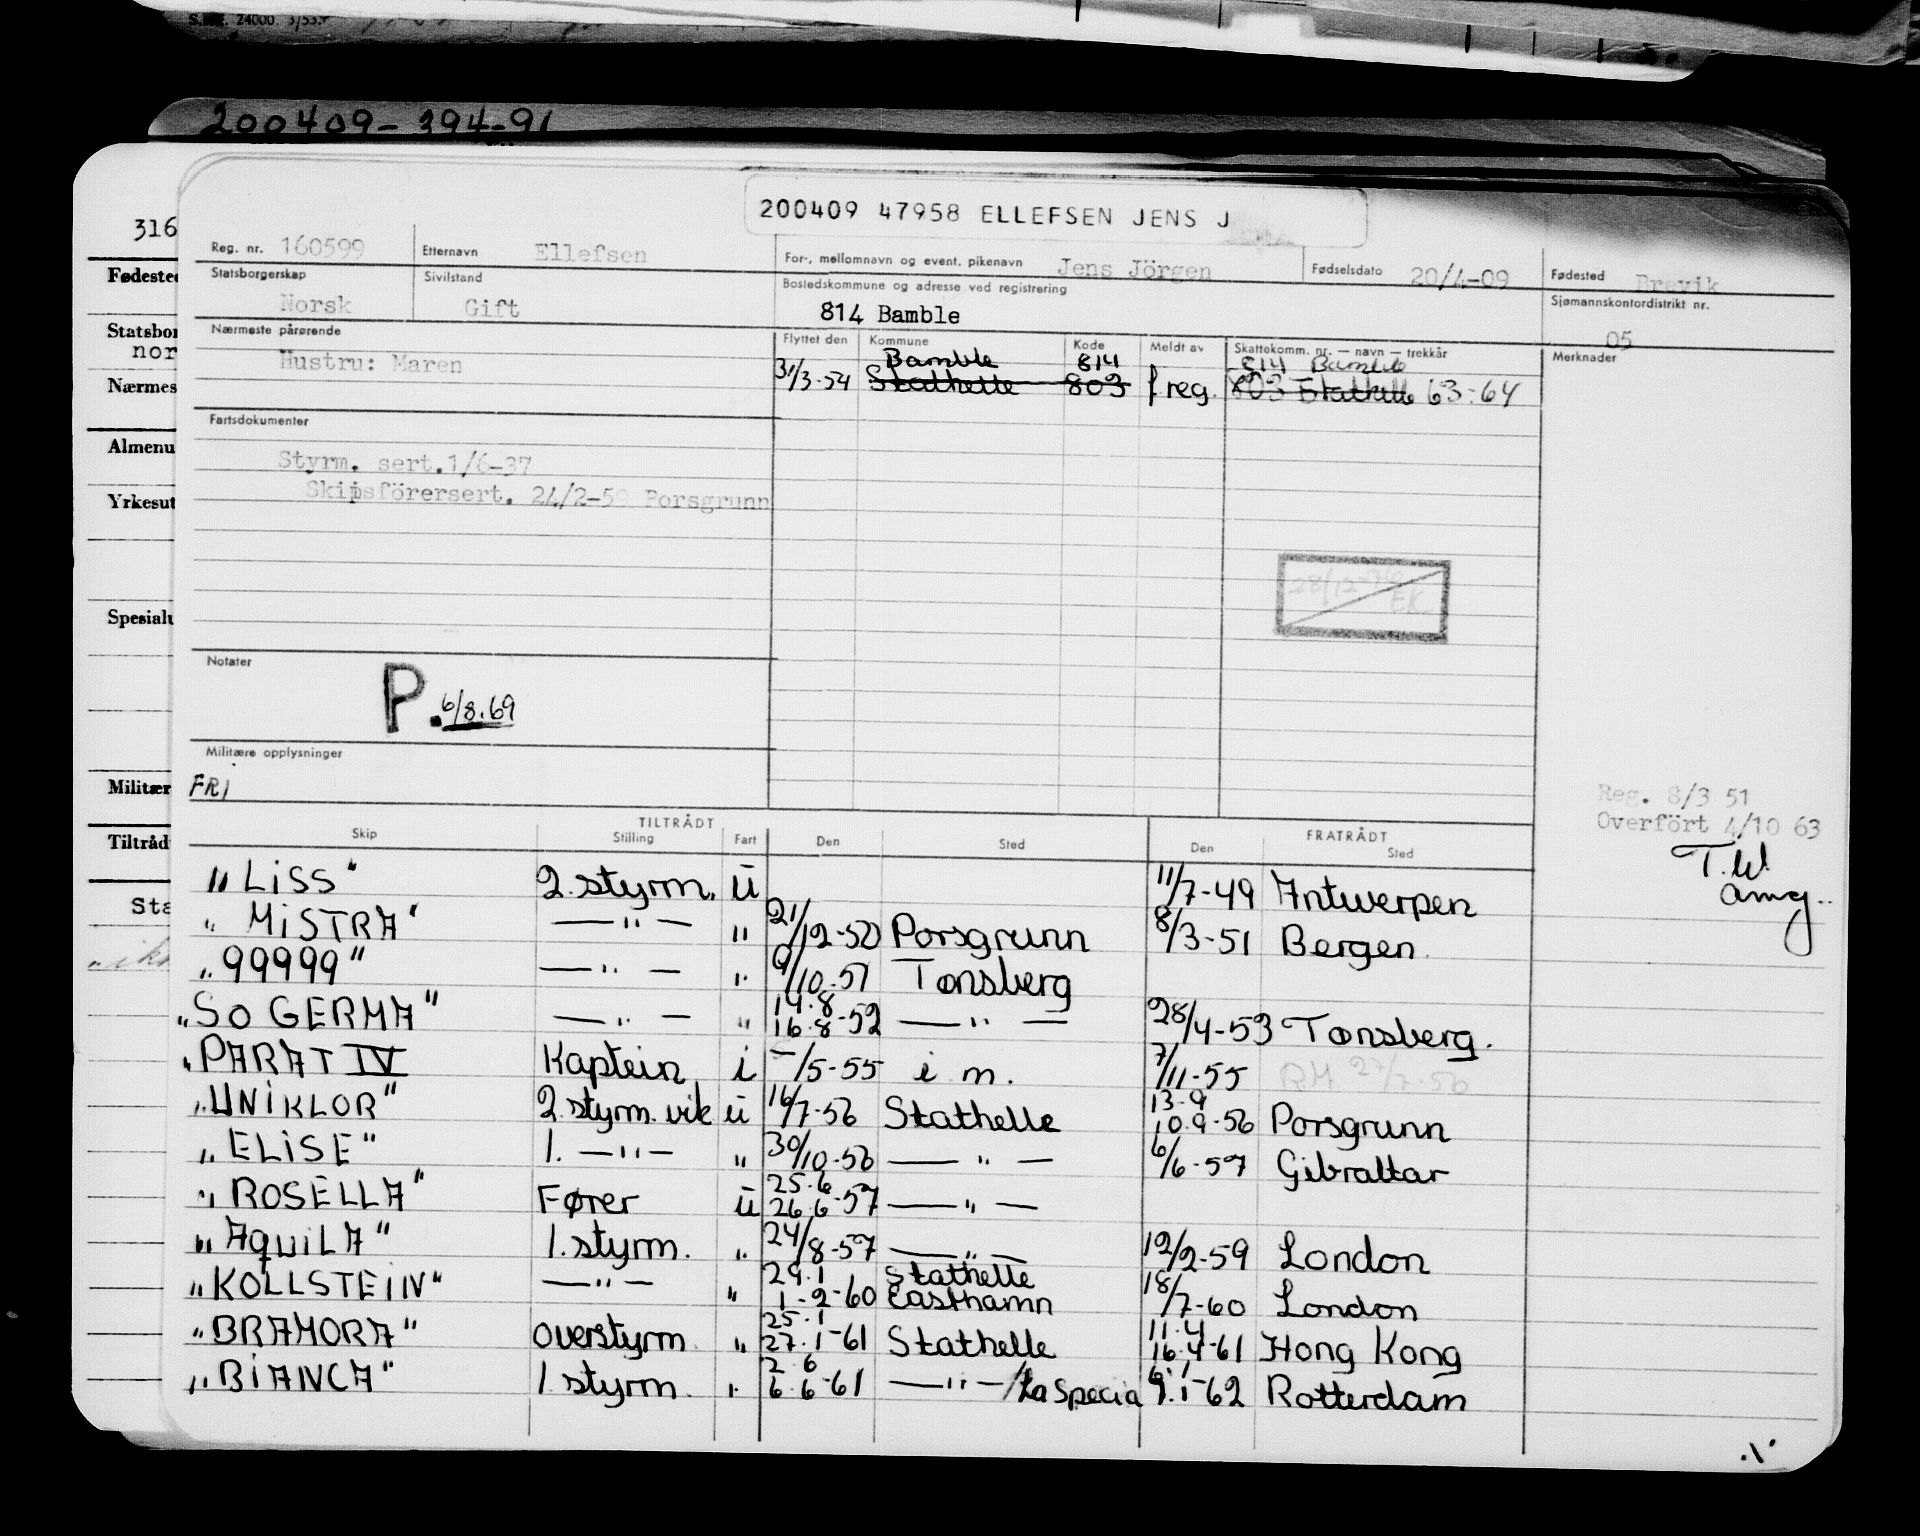 S. 24000. 3/53.
200409-394-91
316
200409 47958 ELLEFSEN JENS J
Reg. nr. 160599 Etternavn Ellefsen For-, mellomnavn og event. pikenavn Jens Jörgen Fødselsdato 20/4-09 Fødested Brevik
Statsborgerskap Norsk Sivilstand Gift Bostedskommune og adresse ved registrering 814 Bamble Sjømannskontordistrikt nr. 05
Nærmeste pårørende Flyttet den Kommune Kode Meldt av Skattekomm. nr. — navn — trekkår Merknader
Hustru: Maren Bamble 814 814 Bamble
31/3-54 Stathelle 803 freg. 803 Stathelle 63-64
Fødested
Statsbor
nor
Nærmes
Almenu
Yrkesut
Spesialu
Militær
Tiltråd
Sta
Fartsdokumenter
Styrm. sert.1/6-37
Skipsförersert. 24/2-59 Porsgrunn
28/12-76
EK
Notater
P. 6/8.69
Militære opplysninger
FRI
Reg. 8/3 51
Overfört 4/10 63
T.W.
amg.
TILTRÅDT FRATRÅDT
Skip Stilling Fart Den Sted Den Sted
"LISS" 2. styrm. ü 11/7-49 Antwerpen
"MISTRA" —"— " 21/12-50 Porsgrunn 8/3-51 Bergen
"99999" —"— " 9/10-51 Tønsberg
"SO GERMA" —"— " 14.8 16.8-52 —"— 28/4-53 Tønsberg.
"PARAT IV Kaptein i -/5-55 i m. 7/11-55 RM 27/7-56
"UNIKLOR" 2. styrm. vik ü 16/7-56 Stathelle 13.9 10.9-56 Porsgrunn
"ELISE" 1. —"— " 30/10-56 —"— 6/6-57 Gibraltar
"ROSELLA" Fører ü 25.6 26.6-57 —"—
"AQUILA" 1. styrm. " 24/8-57 —"— 12/2-59 London
"KOLLSTEIN" —"— " 29.1 1-2-60 Stathelle Easthamn 18/7-60 London
"BRAMORA" overstyrm. " 25.1 27.1-61 Stathelle 11.4 16.4-61 Hong Kong
"BIANCA" 1. styrm. " 2.6 6.6-61 —"—/La Specia 6.1 9.1-62 Rotterdam